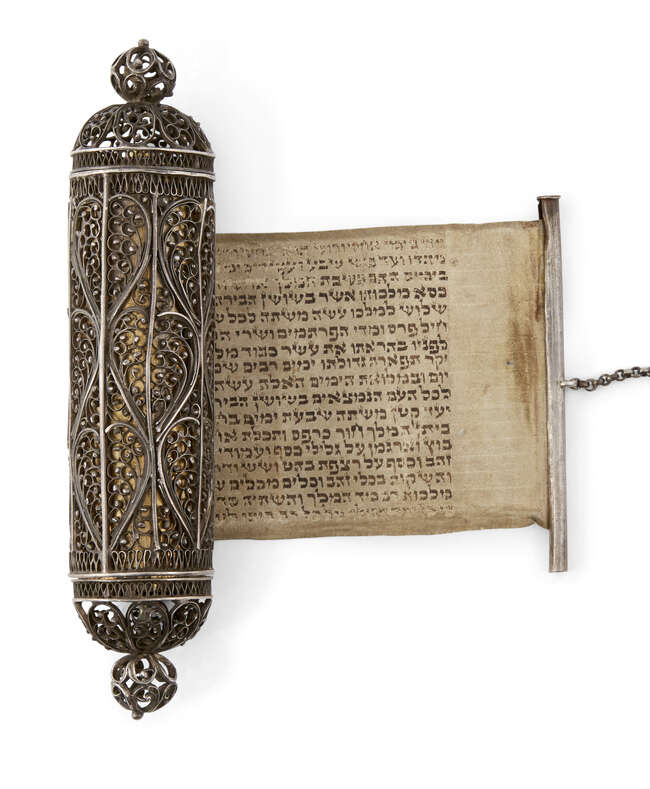 ויהי בימי אחשורוש
מהדו ועד כוש שבע ועשרים
בימים ההם כשבת המלך
כסא מלכותו אשר בשושן הבירה
שלוש למלכו עשה משתה לכל
וחיל פרס ומדי הפרתמים ושרי
לפניו בהראתו את עשר כבוד
יקר תפארת גדולתו ימים רבים
יום ובמלואת הימים האלה עשה
לכל העם הנמצאים בשושן
קטן משתה שבעת ימים
ביתן המלך חור כרפס ותכלת
בוץ וארגמן על גלילי כסף ועמודי
זהב וכסף על רצפת בהט ושש
והשקות בכלי זהב וכלים מכלים
מלכות רב כיד המלך והשתיה
על כל רב ביתו